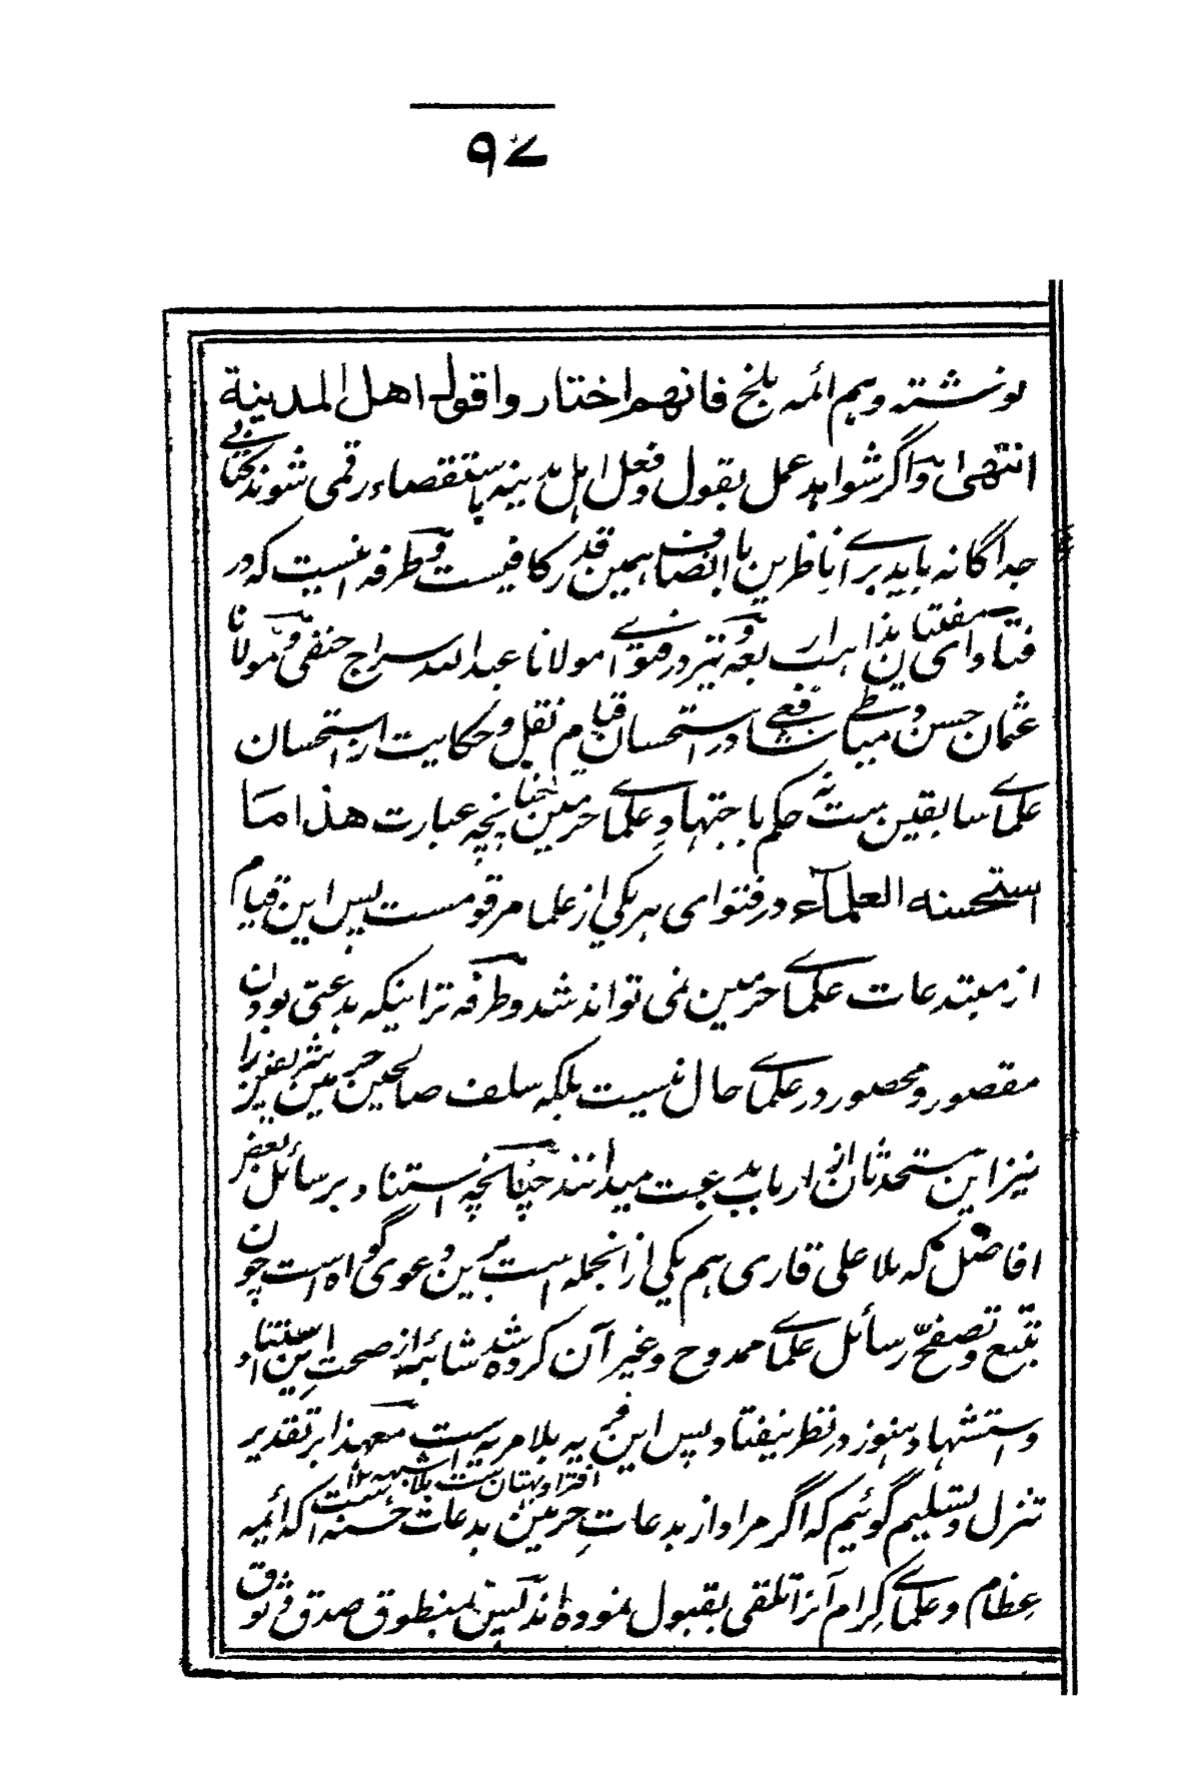 ۹۷
نوشته وهم ائمه بلخ فانهم اختاروا قول اهل المدينة
انتهى اه واگر شواهد عمل بقول وفعل اهل مدینه باستقصاء رقمی شوند کتابی
جداگانه باید برای ناظرین با انصاف همین قدر کافیست وطرفه انیست که در
فتاوای مفتیان مذاهب اربعه ونیز در فتوی مولانا عبدالله سراج حنفی ومولانا
عثمان حسن دمیاطی شافعی در استحسان قیام نقل وحکایت از استحسان
علمای سابقین ست نه حکم باجتهاد علمای حرمین چنانچه عبارت هذا ما
استحسنه العلماء در فتوای هر یکی از علما مرقومست پس این قیام
از مبتدعات علمای حرمین نمی تواند شد وطرفه تر اینکه بدعتی بودن
مقصور ومحصور در علمای حال نیست بلکه سلف صالحین حرمین شریفین را
نیز این مستحدثان از ارباب بدعت میدانند چنانچه استناد بر سائل بعض
افاضل که ملا علی قاری هم یکی از انجمله است برین دعوی گواه است چون
تتبع وتصفح رسائل علمای ممدوح وغیر آن کرده شد شائبه از صحت این استناد
واستشهاد هنوز در نظر نیفتاد پس این فریه بلا مریه ست معهذا بر تقدیر
افترا وبهتان ست بلا اشبهه ۱۲
تنزل وتسلیم گوئیم که اگر مراد از بدعات حرمین بدعات حسنه است که ائمه
عظام وعلمای کرام آنرا تلقی بقبول نموده اند پس بمنطوق صدق وثوق